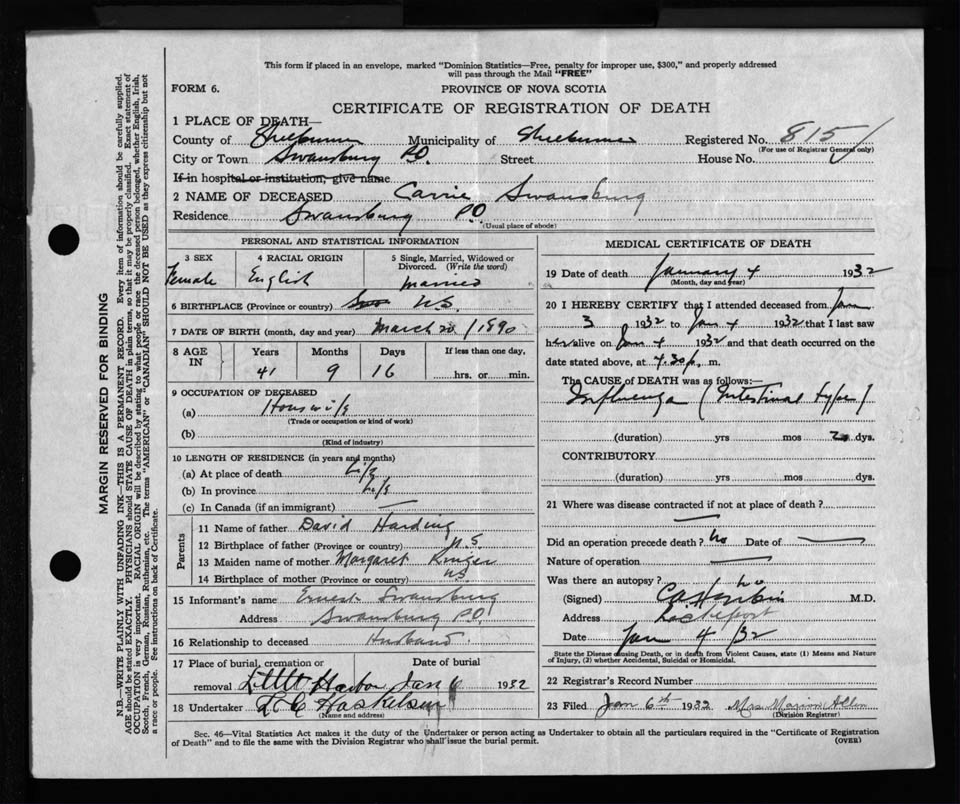 This form if placed in an envelope, marked "Dominion Statistics—Free, penalty for improper use, $300," and properly addressed
will pass through the Mail "FREE"
FORM 6.
PROVINCE OF NOVA SCOTIA
CERTIFICATE OF REGISTRATION OF DEATH
1 PLACE OF DEATH—
County of Shelburne Municipality of Shelburne Registered No. 815
(For use of Registrar General only)
City or Town Swansburg P.O. Street House No.
If in hospital or institution, give name
2 NAME OF DECEASED Carrie Swansburg
Residence Swansburg P.O.
(Usual place of abode)
PERSONAL AND STATISTICAL INFORMATION
3 SEX 4 RACIAL ORIGIN 5 Single, Married, Widowed or
Divorced. (Write the word)
Female English married
6 BIRTHPLACE (Province or country) N.S.
7 DATE OF BIRTH (month, day and year) March 20 / 1890
8 AGE IN Years Months Days If less than one day,
41 9 16 hrs. or min.
9 OCCUPATION OF DECEASED
(a) Housewife
(Trade or occupation or kind of work)
(b)
(Kind of industry)
10 LENGTH OF RESIDENCE (in years and months)
(a) At place of death Life
(b) In province Life
(c) In Canada (if an immigrant) —
Parents
11 Name of father David Harding
12 Birthplace of father (Province or country) N.S
13 Maiden name of mother Margaret
14 Birthplace of mother (Province or country) N.S.
15 Informant's name Ernest Swansburg
Address Swansburg P.O.
16 Relationship to deceased Husband
17 Place of burial, cremation or Date of burial
removal Little Harbor Jan 6 1932
18 Undertaker
(Name and address)
MEDICAL CERTIFICATE OF DEATH
19 Date of death January 4 1932
(Month, day and year)
20 I HEREBY CERTIFY that I attended deceased from Jan
3 1932 to Jan 4 1932 that I last saw
her alive on Jan 4 1932 and that death occurred on the
date stated above, at 4.30 p. m.
The CAUSE OF DEATH was as follows:—
Influenza (Intestinal type)
(duration) yrs mos dys.
CONTRIBUTORY
(duration) yrs mos dys.
21 Where was disease contracted if not at place of death?
—
Did an operation precede death? No Date of —
Nature of operation —
Was there an autopsy? no
(Signed) M.D.
Address Lockeport
Date Jan 4 /32
State the Disease causing Death, or in death from Violent Causes, state (1) Means and Nature
of Injury, (2) whether Accidental, Suicidal or Homicidal.
22 Registrar's Record Number
23 Filed Jan 6th 1932 Mrs Marion Allen
(Division Registrar)
Sec. 46—Vital Statistics Act makes it the duty of the Undertaker or person acting as Undertaker to obtain all the particulars required in the "Certificate of Registration
of Death" and to file the same with the Division Registrar who shall issue the burial permit.
(OVER)
MARGIN RESERVED FOR BINDING
N.B.—WRITE PLAINLY WITH UNFADING INK—THIS IS A PERMANENT RECORD. Every item of information should be carefully supplied.
AGE should be stated EXACTLY. PHYSICIANS should STATE CAUSE OF DEATH in plain terms, so that it may be properly classified. Exact statement of
OCCUPATION is very important. RACIAL ORIGIN will be described by stating to what people or race the deceased person belonged, whether English, Irish,
Scotch, French, German, Russian, Ruthenian, etc. The terms "AMERICAN" or "CANADIAN" SHOULD NOT BE USED as they express citizenship but not
a race or people. See instructions on back of Certificate.